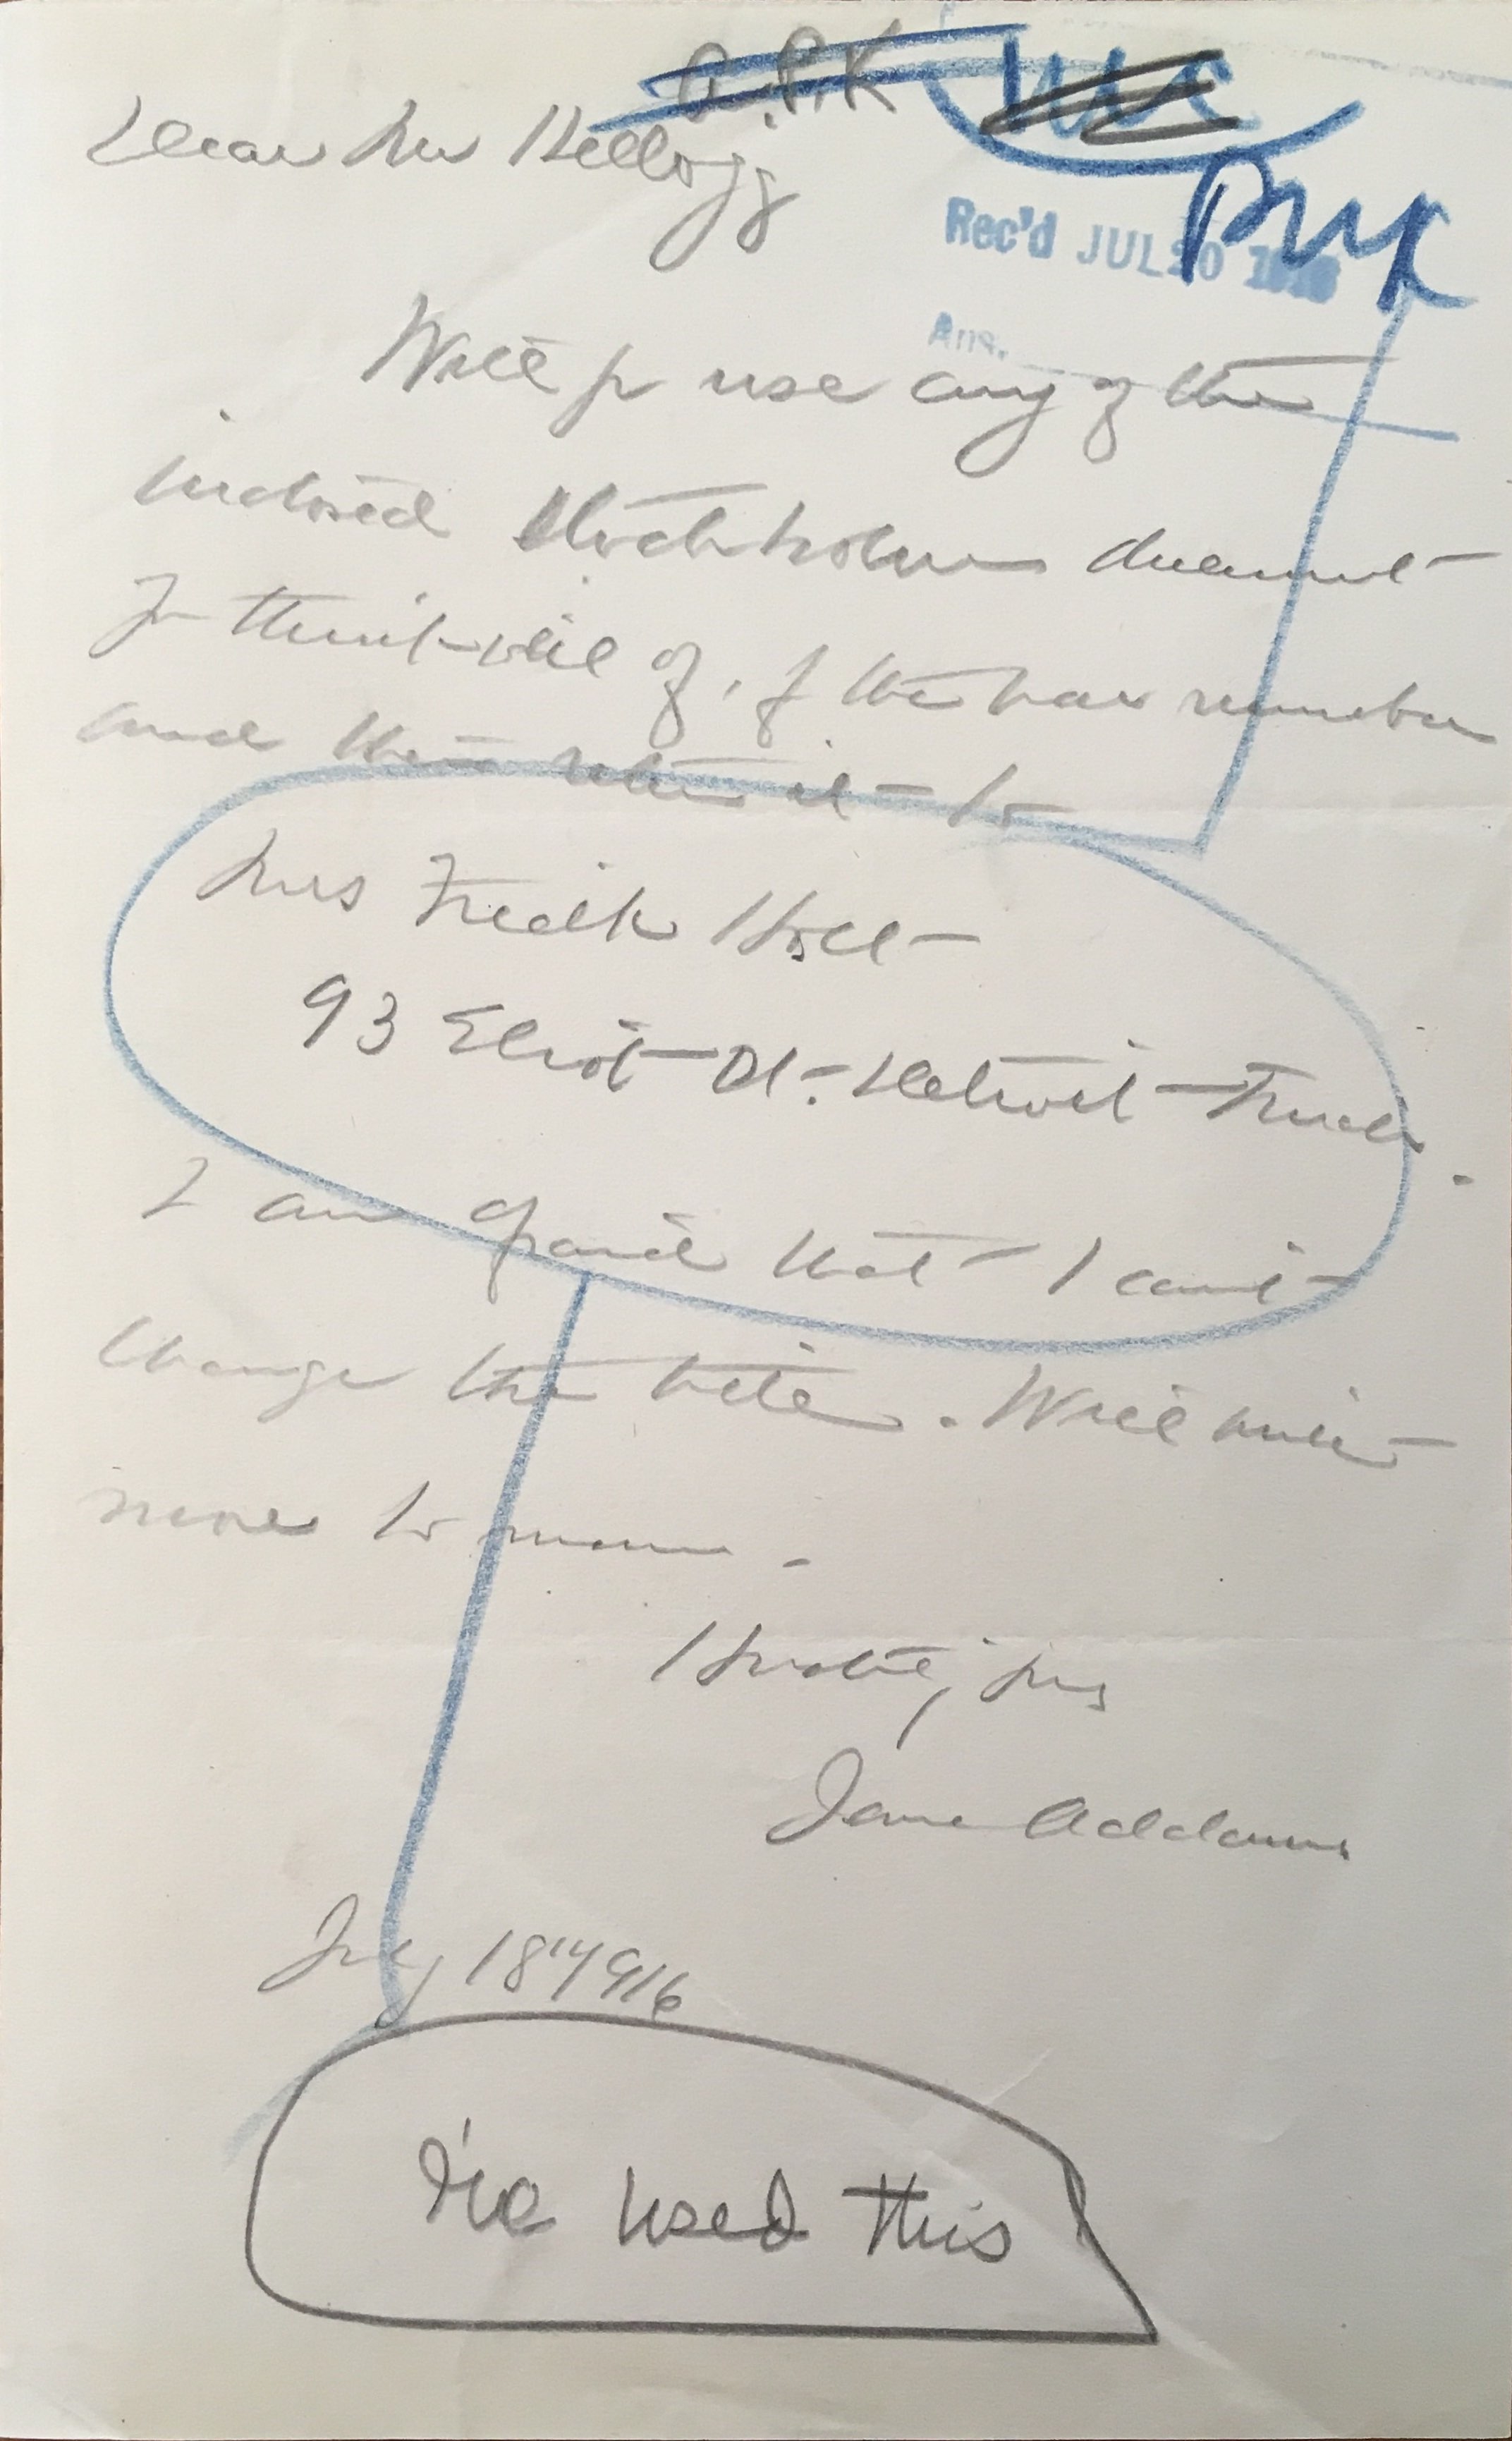 A.P.K
Dear Mr Kellogg
PUK
Rec'd JUL 20 1916
Ans.
Will yr use any of the
inclosed Stockholm document
yr think well of, for the war number
and then return it to
Mrs Fredk Holt
93 Eliot St. Detroit Mich.
I am afraid that I can't
change the title. Will write
more to
yrs
Jane Addams
July 18" 1916
I've used this